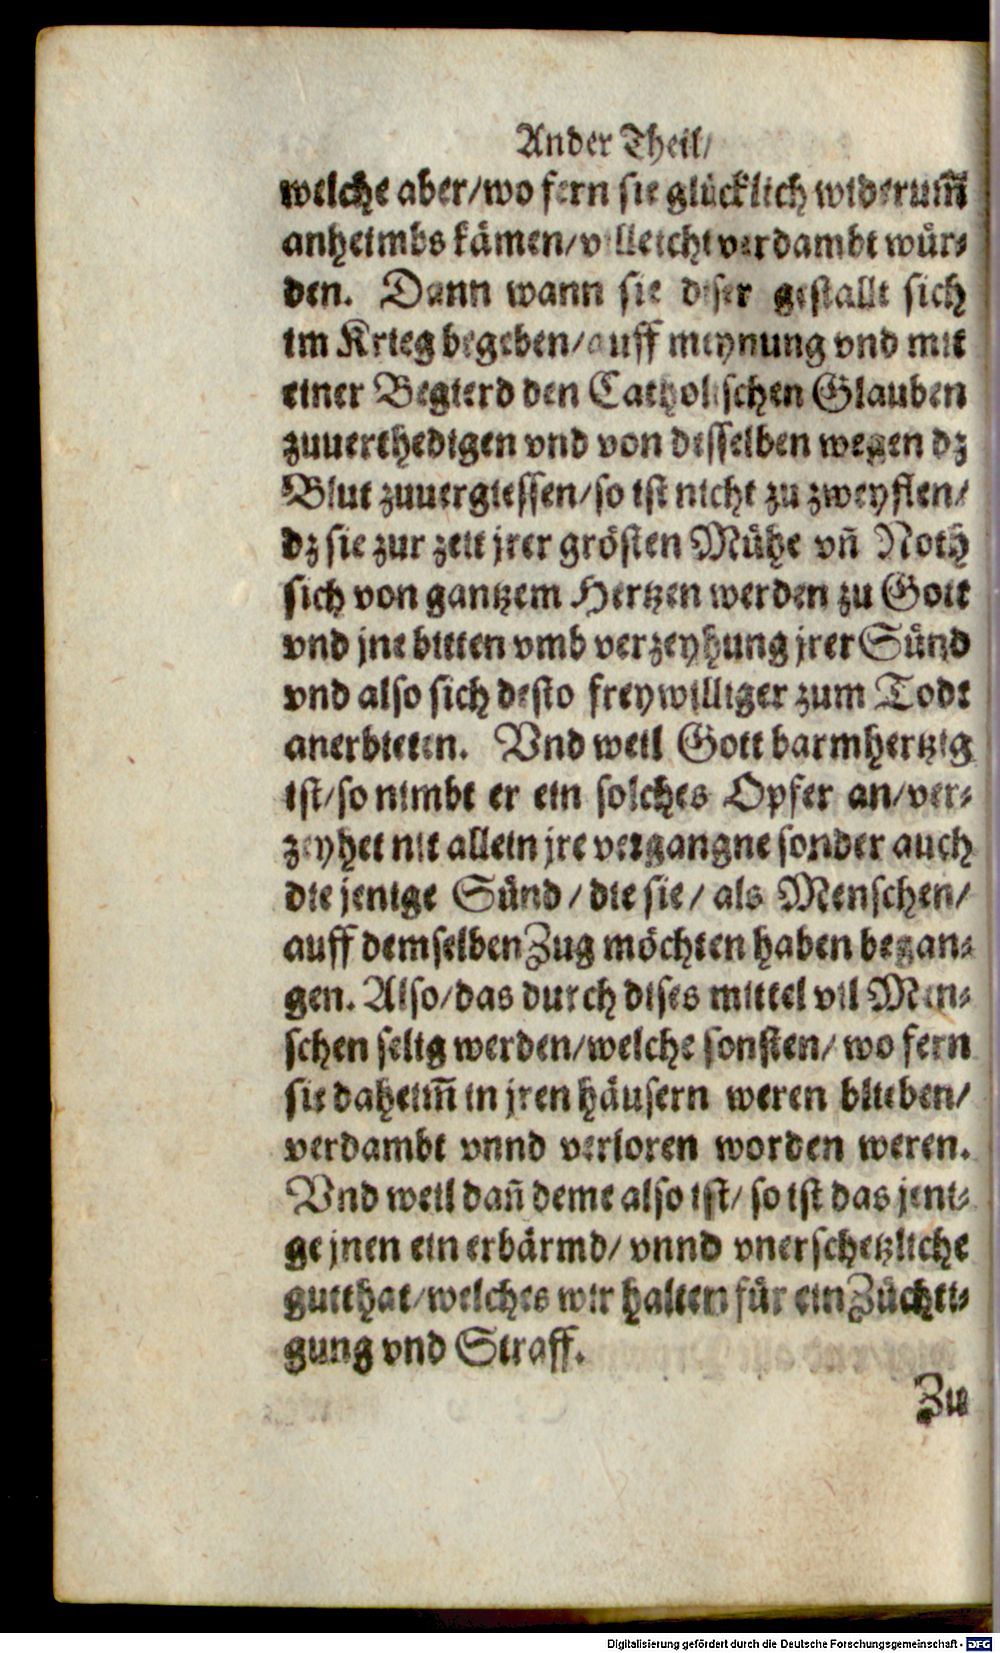 Ander Theil/
welche aber/wo fern sie glücklich widerum̃
anheimbs kämen/villeicht verdambt wür-
den. Dann wann sie diser gestallt sich
im Krieg begeben/auff meynung vnd mit
einer Begierd den Catholischen Glauben
zuuerthedigen vnd von desselben wegen dz
Blut zuuergiessen/so ist nicht zu zweyflen/
dz sie zur zeit jrer grösten Mühe vñ Noth
sich von gantzem Hertzen werden zu Gott
vnd jne bitten vmb verzeyhung jrer Sünd
vnd also sich desto freywilliger zum Todt
anerbieten. Vnd weil Gott barmhertzig
ist/so nimbt er ein solches Opfer an/ver-
zeyhet nit allein jre vergangne sonder auch
die jenige Sünd/die sie/als Menschen/
auff demselben Zug möchten haben began-
gen. Also/das durch dises mittel vil Men-
schen selig werden/welche sonsten/wo fern
sie daheim̃ in jren häusern weren blieben/
verdambt vnnd verloren worden weren.
Vnd weil dañ deme also ist/so ist das jeni-
ge jnen ein erbärmd/vnnd vnerschetzliche
gutthat/welches wir halten für ein Züchti-
gung vnd Straff.
Zu
Digitalisierung gefördert durch die Deutsche Forschungsgemeinschaft - DFG